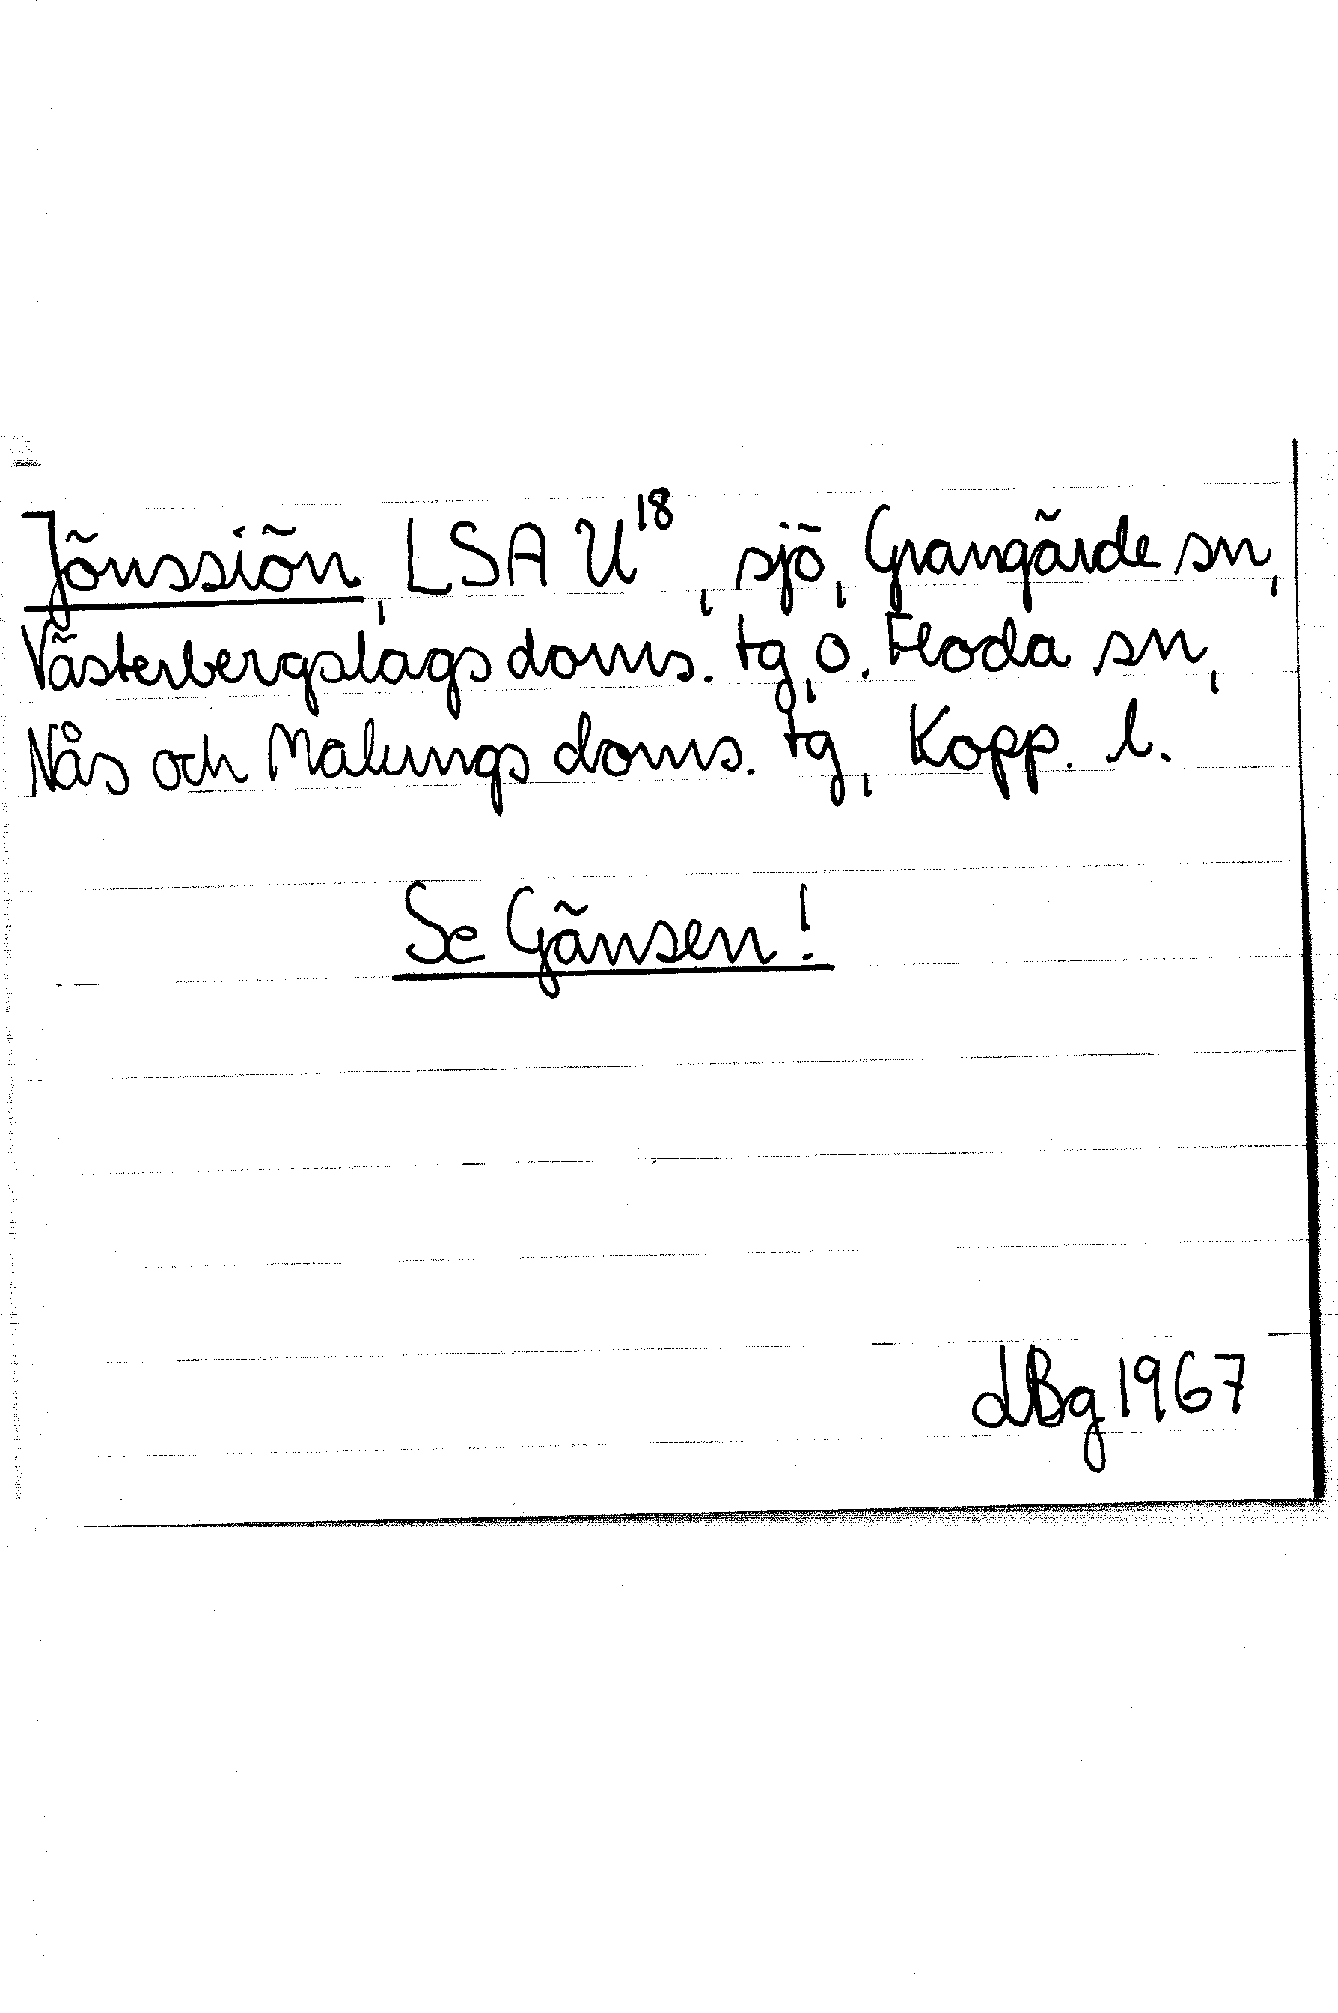 Jönssiön, LSA U18, sjö, Grangärde sn,
Västerbergslags doms. tg, o. Floda sn,
Nås och Malungs doms. tg, Kopp. l.
Se Gänsen!
dBg 1967